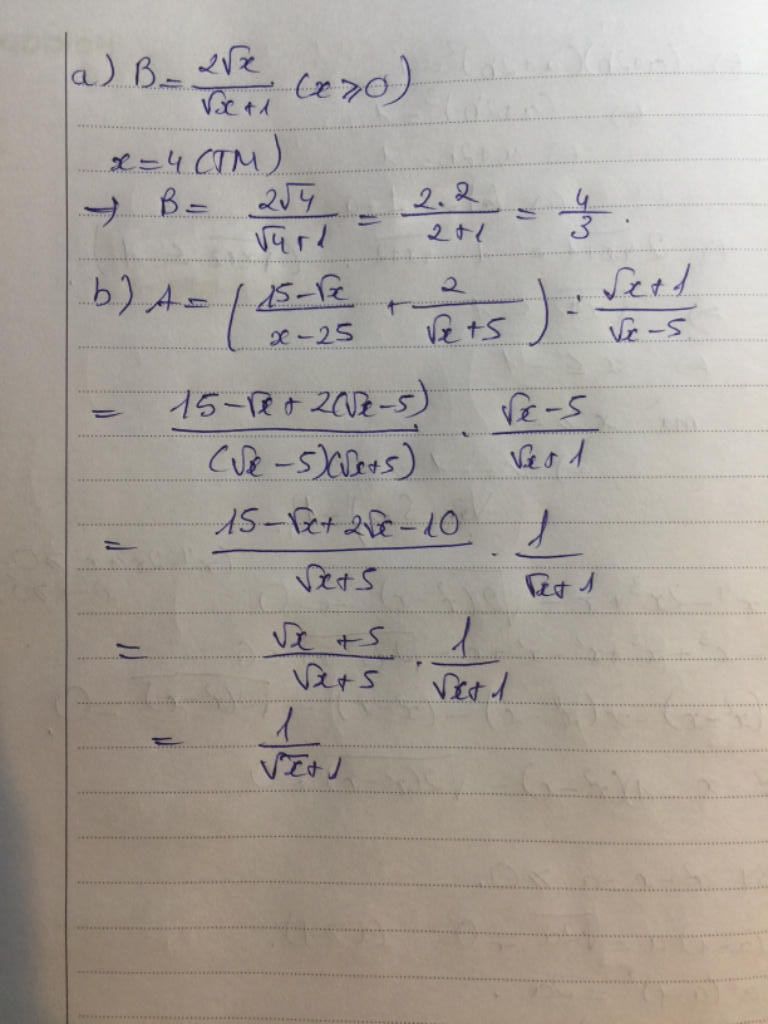 a) B = 2√x / (√x+1) (x ≥ 0)
x = 4 (TM)
→ B = 2√4 / (√4+1) = 2.2 / (2+1) = 4/3.
b) A = ( (15-√x) / (x-25) + 2 / (√x+5) ) : (√x+1) / (√x-5)
= (15-√x+2(√x-5)) / ((√x-5)(√x+5)) . (√x-5) / (√x+1)
= (15-√x+2√x-10) / (√x+5) . 1 / (√x+1)
= (√x+5) / (√x+5) . 1 / (√x+1)
= 1 / (√x+1)